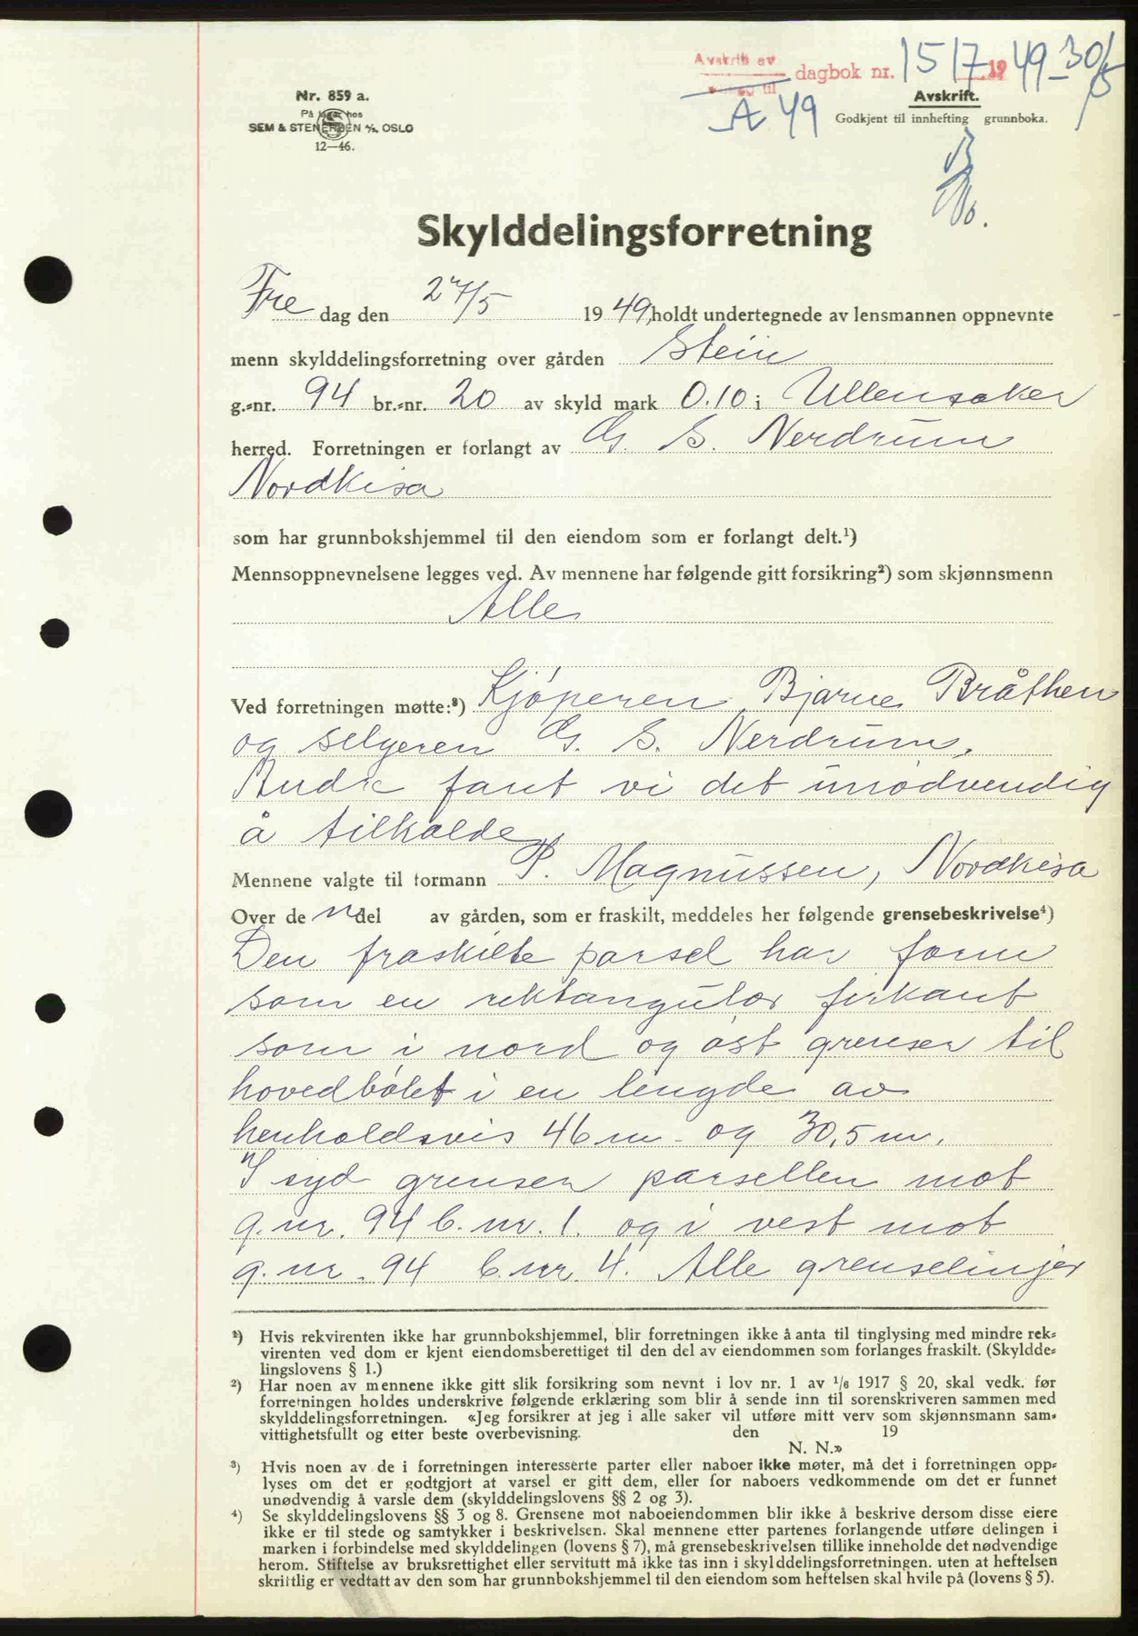 Avskrift av dagbok nr. 1517 1949 - 30/5
A 49
Nr. 859 a.
På lager hos
SEM & STENERSEN A/S, OSLO
12—46.
Avskrift.
Godkjent til innhefting grunnboka.
Skylddelingsforretning
Fredag den 27/5 1949, holdt undertegnede av lensmannen oppnevnte
menn skylddelingsforretning over gården Stein
g.-nr. 94 br.-nr. 20 av skyld mark 0.10 i Ullensaker
herred. Forretningen er forlangt av G. S. Nerdrum
Nordkisa
som har grunnbokshjemmel til den eiendom som er forlangt delt.¹)
Mennsoppnevnelsene legges ved. Av mennene har følgende gitt forsikring²) som skjønnsmenn
Alle
Ved forretningen møtte:³) Kjøperen Bjarne Bråthen
og selgeren G. S. Nerdrum.
Andre fant vi det unødvendig
å tilkalde
Mennene valgte til formann P. Magnussen, Nordkisa
Over de n del av gården, som er fraskilt, meddeles her følgende grensebeskrivelse⁴)
Den fraskilte parsel har form
som en rektangulær firkant
som i nord og øst grenser til
hovedbølet i en lengde av
henholdsvis 46 m - og 30,5 m.
I syd grenser parsellen mot
g. nr. 94 b. nr. 1. og i vest mot
g. nr. 94 b. nr. 4. Alle grenselinjer
¹) Hvis rekvirenten ikke har grunnbokshjemmel, blir forretningen ikke å anta til tinglysing med mindre rek-
virenten ved dom er kjent eiendomsberettiget til den del av eiendommen som forlanges fraskilt. (Skyldde-
lingslovens § 1.)
²) Har noen av mennene ikke gitt slik forsikring som nevnt i lov nr. 1 av 1/6 1917 § 20, skal vedk. før
forretningen holdes underskrive følgende erklæring som blir å sende inn til sorenskriveren sammen med
skylddelingsforretningen. «Jeg forsikrer at jeg i alle saker vil utføre mitt verv som skjønnsmann sam-
vittighetsfullt og etter beste overbevisning. den 19
N. N.»
³) Hvis noen av de i forretningen interesserte parter eller naboer ikke møter, må det i forretningen opp-
lyses om det er godtgjort at varsel er gitt dem, eller for naboers vedkommende om det er funnet
unødvendig å varsle dem (skylddelingslovens §§ 2 og 3).
⁴) Se skylddelingslovens §§ 3 og 8. Grensene mot naboeiendommen blir ikke å beskrive dersom disse eiere
ikke er til stede og samtykker i beskrivelsen. Skal mennene etter partenes forlangende utføre delingen i
marken i forbindelse med skylddelingen (lovens § 7), må grensebeskrivelsen tillike inneholde det nødvendige
herom. Stiftelse av bruksrettighet eller servitutt må ikke tas inn i skylddelingsforretningen. uten at heftelsen
skriftlig er vedtatt av den som har grunnbokshjemmel til den eiendom som heftelsen skal hvile på (lovens § 5).